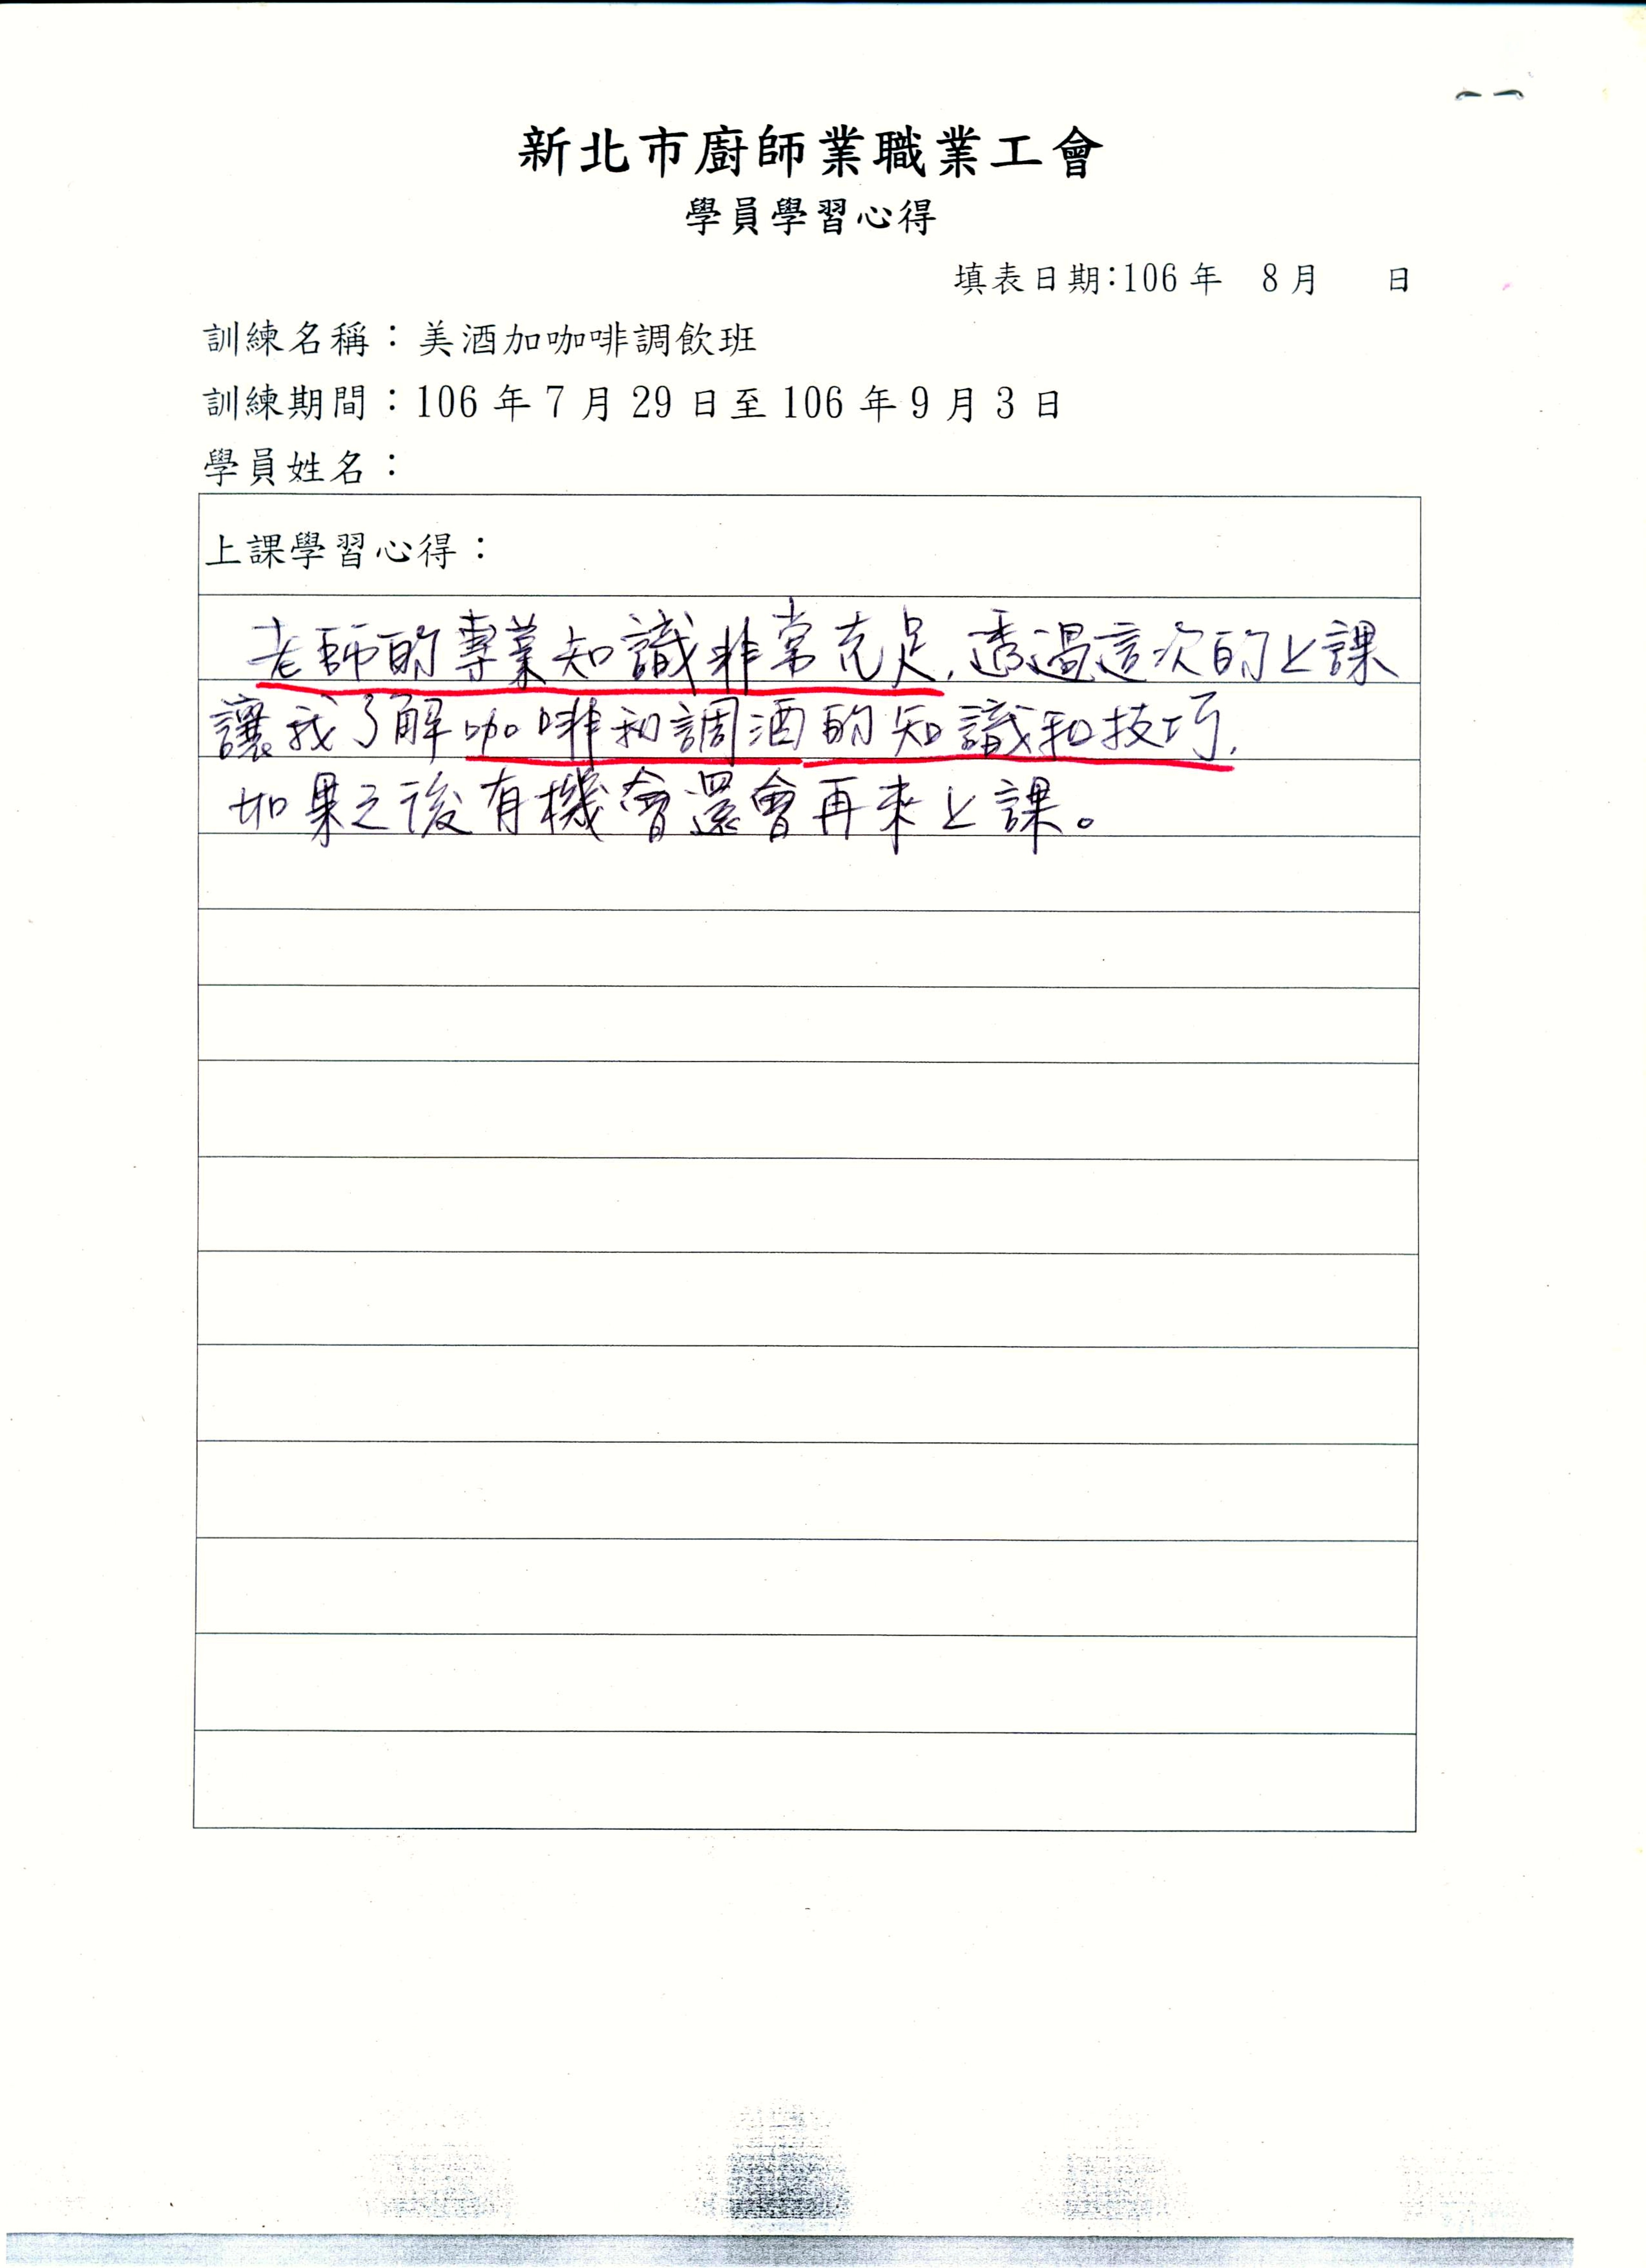 新北市廚師業職業工會
學員學習心得
填表日期:106 年 8 月 日
訓練名稱：美酒加咖啡調飲班
訓練期間：106 年 7 月 29 日至 106 年 9 月 3 日
學員姓名：
上課學習心得：
老師的專業知識非常充足,透過這次的上課
讓我了解咖啡和調酒的知識和技巧,
如果之後有機會還會再來上課。